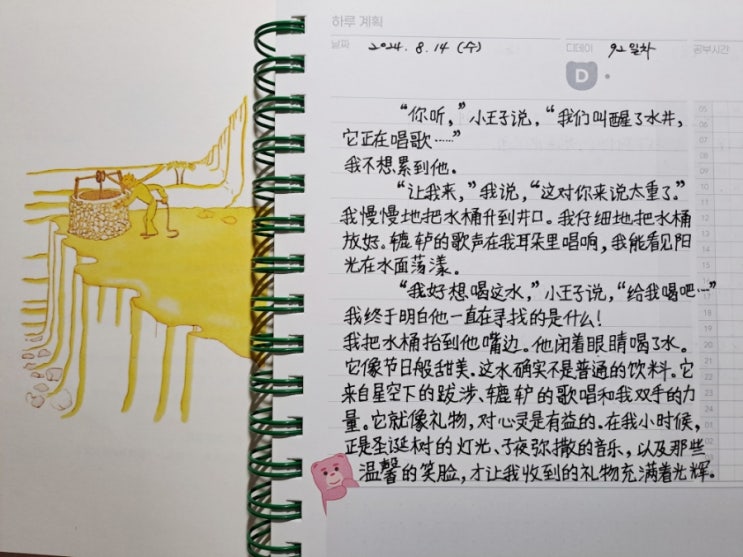 하루 계획
날짜 2024. 8. 14 (수) 디데이 92일차 공부시간
D
“你听，”小王子说，“我们叫醒了水井，
它正在唱歌……”
我不想累到他。
“让我来，”我说，“这对你来说太重了。”
我慢慢地把水桶升到井口。我仔细地把水桶
放好。辘轳的歌声在我耳朵里唱响，我能看见阳
光在水面荡漾。
“我好想喝这水，”小王子说，“给我喝吧…”
我终于明白他一直在寻找的是什么！
我把水桶抬到他嘴边。他闭着眼睛喝了水。
它像节日般甜美。这水确实不是普通的饮料。它
来自星空下的跋涉、辘轳的歌唱和我双手的力
量。它就像礼物，对心灵是有益的。在我小时候，
正是圣诞树的灯光、子夜弥撒的音乐，以及那些
温馨的笑脸，才让我收到的礼物充满着光辉。
05
06
07
08
09
10
11
12
13
14
15
16
17
18
19
20
21
22
23
24
01
02
03